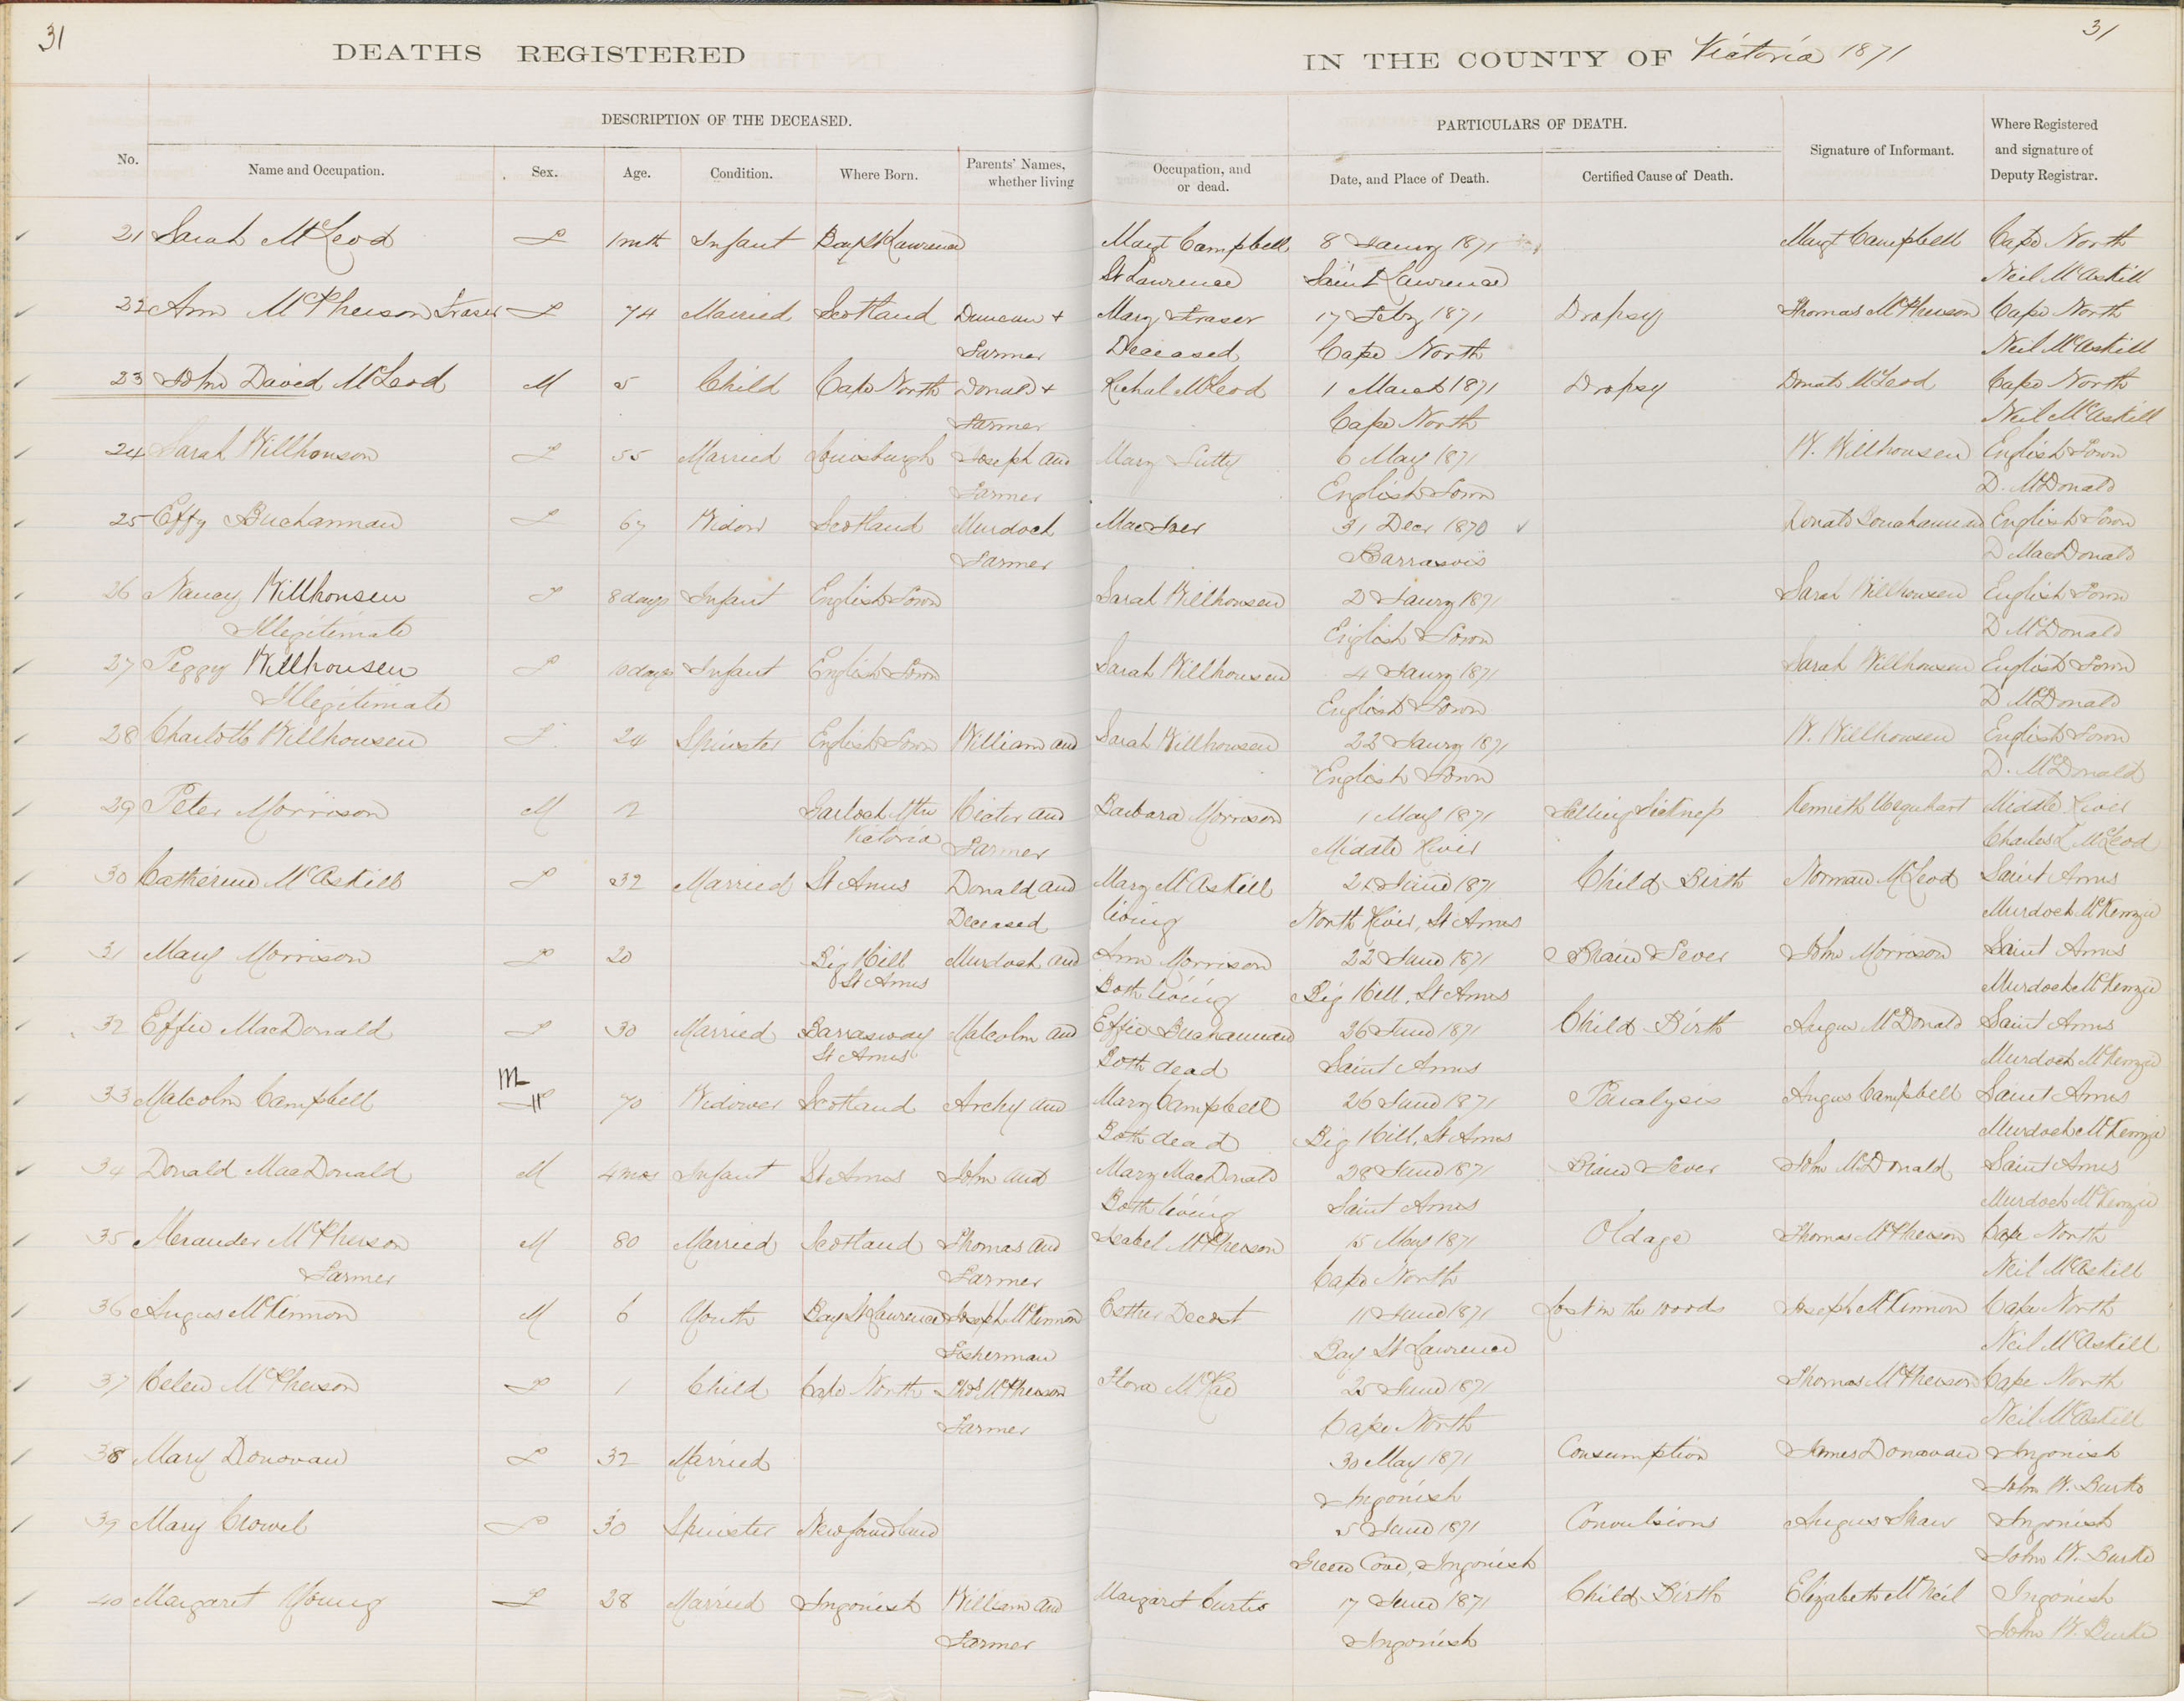 31
31
DEATHS REGISTERED IN THE COUNTY OF Victoria 1871
DESCRIPTION OF THE DECEASED. PARTICULARS OF DEATH.
No. Name and Occupation. Sex. Age. Condition. Where Born. Parents' Names, whether living Occupation, and or dead. Date, and Place of Death. Certified Cause of Death. Signature of Informant. Where Registered and signature of Deputy Registrar.
21 Sarah McLeod F 1 mth Infant Bay St Lawrence Margt Campbell 8 Jany 1871 Margt Campbell Cape North
St Lawrence Saint Lawrence Neil McAskill
22 Ann McPherson Fraser F 74 Married Scotland Duncan + Mary Fraser 17 Feby 1871 Dropsy Thomas McPherson Cape North
Farmer Deceased Cape North Neil McAskill
23 John David McLeod M 5 Child Cape North Donald + McLeod 1 March 1871 Dropsy Donald McLeod Cape North
Farmer Cape North Neil McAskill
24 Sarah Willhouson F 55 Married Louisburgh Joseph and Mary 6 May 1871 W. Willhousen English Town
Farmer English Town D. McDonald
25 Effy Buchannan F 67 Widow Scotland Murdoch MacIver 31 Decr 1870 English Town
Farmer Barrasois D MacDonald
26 Nancy Willhousen F 8 days Infant English Town Sarah Willhousen 2 Jany 1871 Sarah Willhousen English Town
Illegitimate English Town D McDonald
27 Peggy Willhousen F 10 days Infant English Town Sarah Willhousen 4 Jany 1871 Sarah Willhousen English Town
Illegitimate English Town D McDonald
28 Charlotte Willhousen F 24 Spinster English Town William and Sarah Willhousen 22 Jany 1871 W. Willhousen English Town
English Town D. McDonald
29 Peter Morrison M 12 Gairloch Mtn Hector and Barbara Morrison 1 May 1871 Falling Sickness Kenneth Urquhart Middle River
Victoria Farmer Middle River Charles L McLeod
30 Catherine McAskill F 32 Married St Anns Donald and Mary McAskill 21 June 1871 Child Birth Norman McLeod Saint Anns
Deceased living North River, St Anns Murdoch McKenzie
31 Mary Morrison F 20 Big Hill Murdoch and Ann Morrison 22 June 1871 Brain Fever John Morrison Saint Anns
St Anns Both living Big Hill, St Anns Murdoch McKenzie
32 Effie MacDonald F 30 Married Barrasway Malcolm and Effie Buchannan 26 June 1871 Child Birth Angus McDonald Saint Anns
St Anns Both dead Saint Anns Murdoch McKenzie
M
33 Malcolm Campbell F 70 Widower Scotland Archy and Mary Campbell 26 June 1871 Paralysis Angus Campbell Saint Anns
Both dead Big Hill, St Anns Murdoch McKenzie
34 Donald MacDonald M 4 mos Infant St Anns John and Mary MacDonald 28 June 1871 Brain Fever John McDonald Saint Anns
Both living Saint Anns Murdoch McKenzie
35 Alexander McPherson M 80 Married Scotland Thomas and Isabel McPherson 15 May 1871 Old age Thomas McPherson Cape North
Farmer Farmer Cape North Neil McAskill
36 Angus McKinnon M 6 Youth Bay St Lawrence Joseph McKinnon Esther Decost 11 June 1871 Lost in the woods Joseph McKinnon Cape North
Fisherman Bay St Lawrence Neil McAskill
37 Helen McPherson F 1 Child Cape North Thos McPherson Flora McRae 25 June 1871 Thomas McPherson Cape North
Farmer Cape North Neil McAskill
38 Mary Donovan F 32 Married 30 May 1871 Consumption James Donovan Ingonish
Ingonish John W. Burke
39 Mary Crowel F 30 Spinster Newfoundland 5 June 1871 Convulsions Angus Shaw Ingonish
Green Cove, Ingonish John W. Burke
40 Margaret Young F 28 Married Ingonish William and Margaret Curtis 17 June 1871 Child Birth Elizabeth McNeil Ingonish
Farmer Ingonish John W. Burke